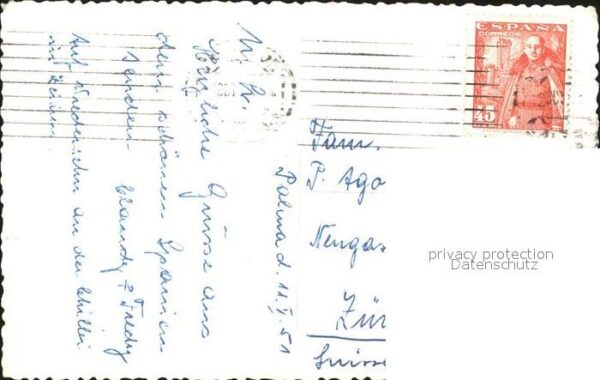 ESPAÑA
CORREOS
45
M. L.
Herzliche Grüsse aus
dem schönen Spanien
senden
Auf Wiedersehn an der
Palma d. 11.5.51
Fam.
P. Ago
Neugas
Zür
Suisse
privacy protection
Datenschutz